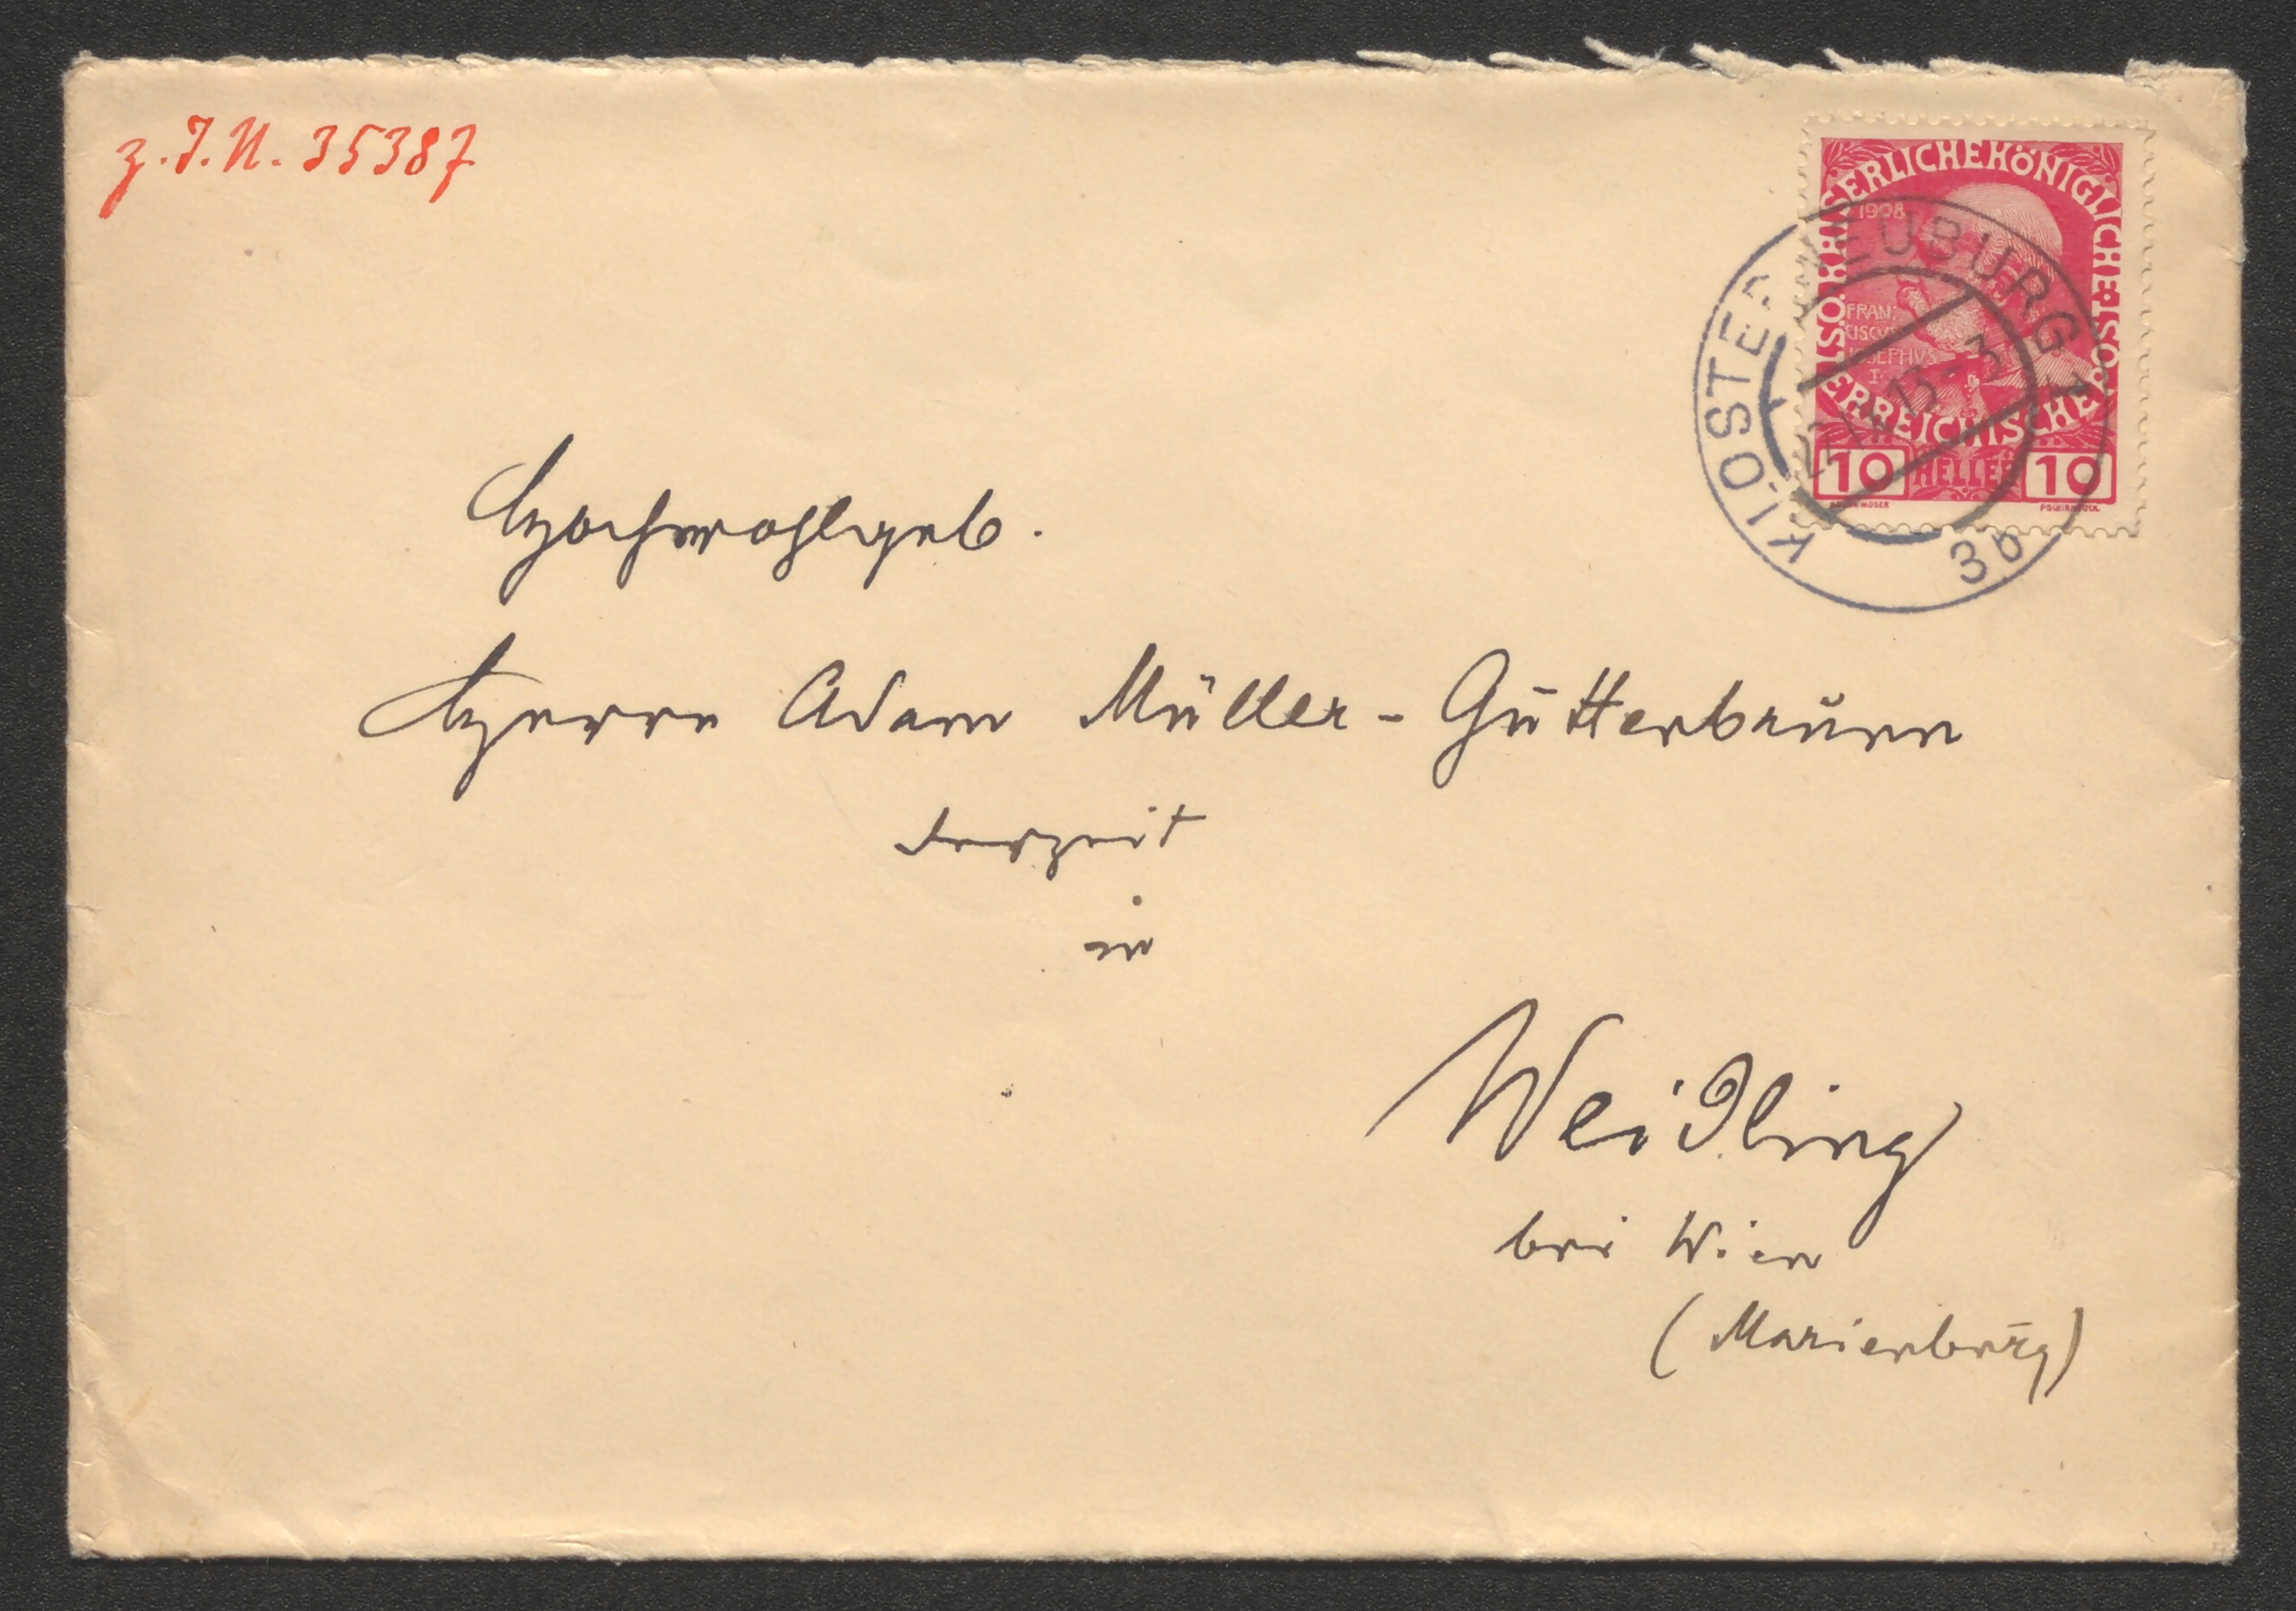 z. I. N. 35387
KAISERLICHE KÖNIGLICHE ÖSTERREICHISCHE POST
1908
FRAN
CISCVS
IOSEPHVS
I.
10 HELLER 10
KLOSTERNEUBURG 1
13-3
3b
Hochwohlgeb.
Herrn Adam Müller-Guttenbrunn
derzeit
in
Weidling
bei Wien
(Marienburg)